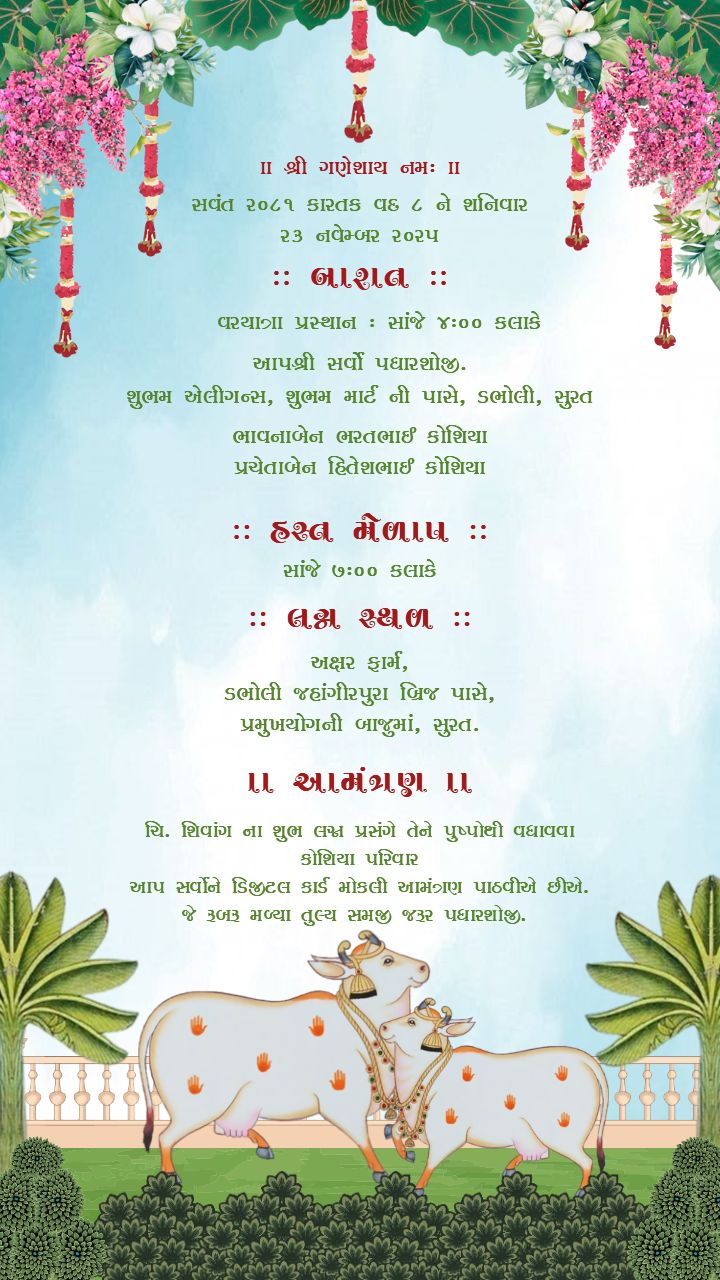 ॥ શ્રી ગણેશાય નમઃ ॥
સવંત ૨૦૮૧ કારતક વદ ૮ ને શનિવાર
૨૩ નવેમ્બર ૨૦૨૫
:: બારાત ::
વરયાત્રા પ્રસ્થાન : સાંજે ૪:૦૦ કલાકે
આપશ્રી સર્વો પધારશોજી.
શુભમ એલીગન્સ, શુભમ માર્ટ ની પાસે, ડભોલી, સુરત
ભાવનાબેન ભરતભાઈ કોશિયા
પ્રચેતાબેન હિતેશભાઈ કોશિયા
:: હસ્ત મેળાપ ::
સાંજે ૭:૦૦ કલાકે
:: લગ્ન સ્થળ ::
અક્ષર ફાર્મ,
ડભોલી જહાંગીરપુરા બ્રિજ પાસે,
પ્રમુખયોગની બાજુમાં, સુરત.
॥ આમંત્રણ ॥
ચિ. શિવાંગ ના શુભ લગ્ન પ્રસંગે તેને પુષ્પોથી વધાવવા
કોશિયા પરિવાર
આપ સર્વોને ડિજીટલ કાર્ડ મોકલી આમંત્રણ પાઠવીએ છીએ.
જે રૂબરૂ મળ્યા તુલ્ય સમજી જરૂર પધારશોજી.